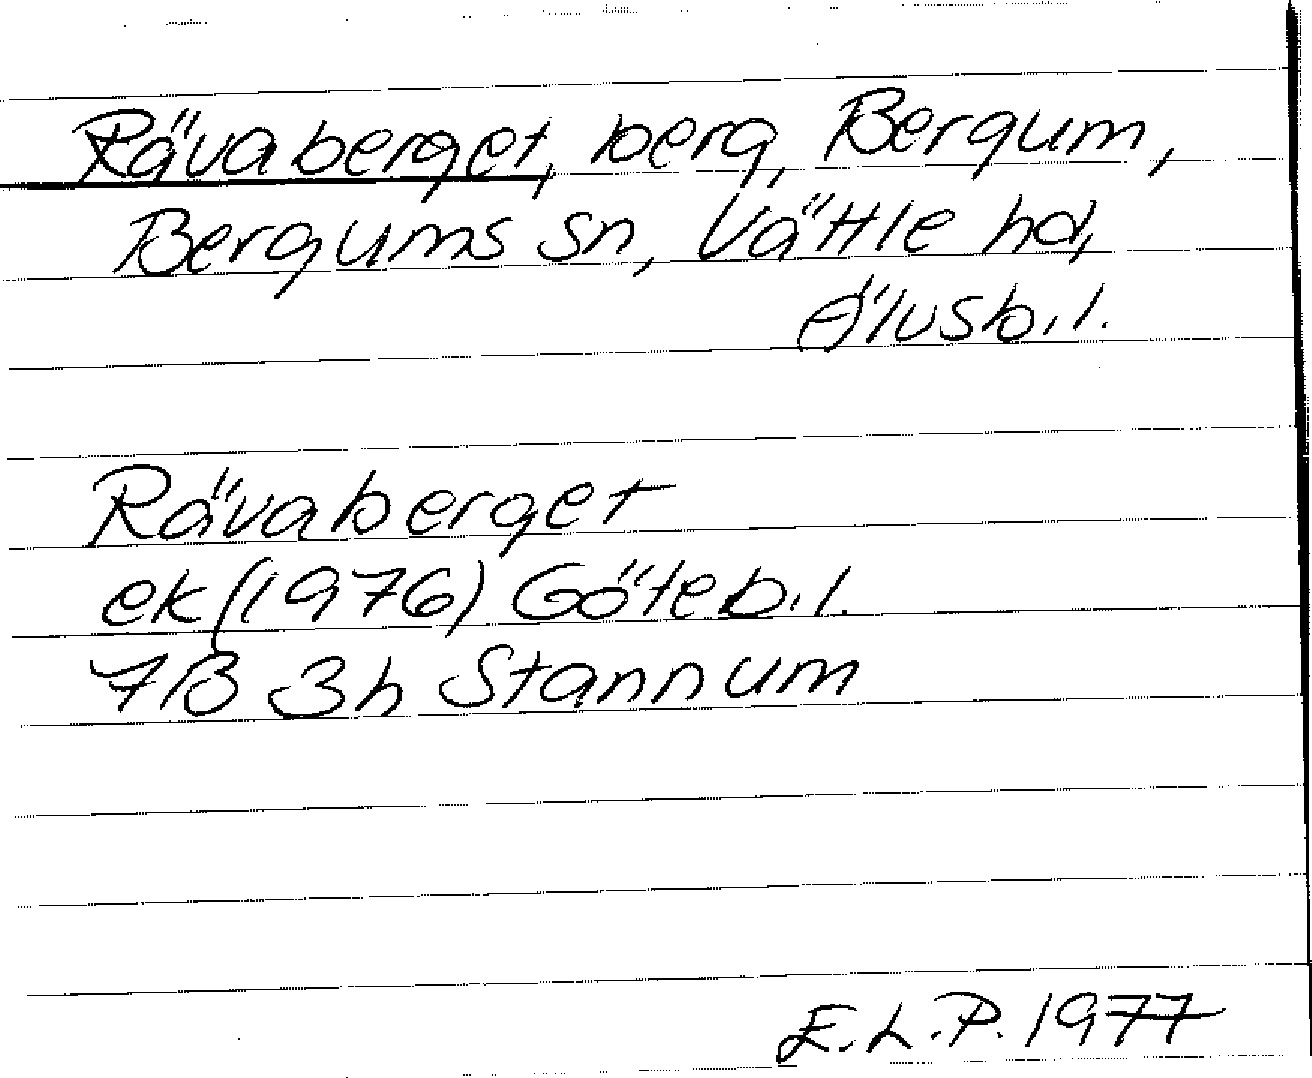 Rävaberget, berg, Bergum,
Bergums sn, Vättle hd,
Älvsb. l.
Rävaberget
ek (1976) Göteb. l.
7B 3h Stannum
E.L.P. 1977